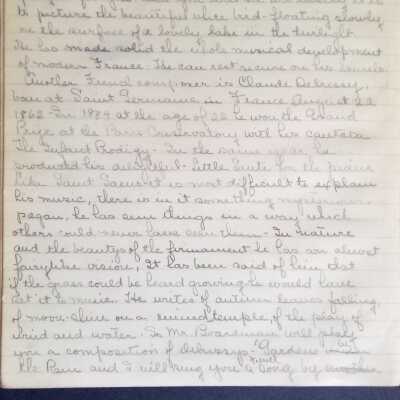 to picture the beautiful white bird floating slowly
on the surface of a lonely lake in the twilight.
He has made solid the whole musical development
of modern France. He can rest secure on his laurels.
Another French composer is Claude Debussy,
born at Saint Germaine in France August 22
1862. In 1884 at the age of 22 he won the Grand
Prize at the Paris Conservatory with his cantata
The Infant Prodigy. In the same year he
produced his delightful Little Suite for the piano
Like Saint Saens it is most difficult to explain
his music, there is in it something mysterious
pagan, he has seen things in a way which
others could never have seen them. In nature
and the beautys of the firmament he has an almost
fairylike vision, It has been said of him that
if the grass could be heard growing he would have
set it to music. He writes of autumn leaves falling,
of moon-shine on a ruined temple, of the play of
wind and water. So Mr. Boardman will play
you a composition of Debussys "Gardens in
the Rain and I will sing you a song by